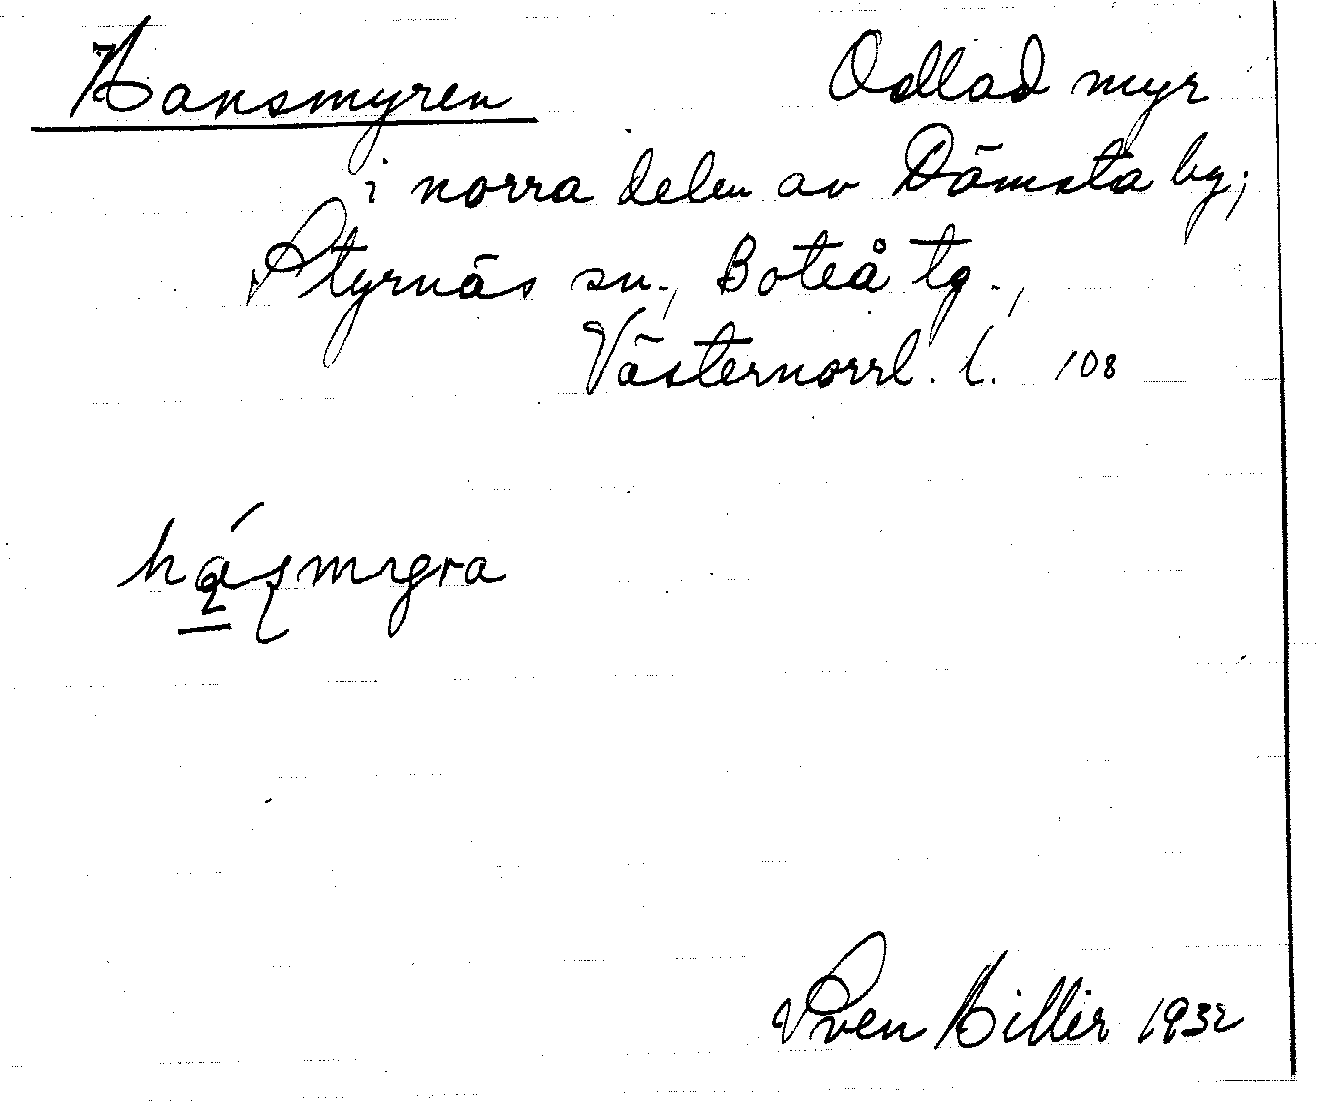 Hansmyren Odlad myr
i norra delen av Dämsta by,
Styrnäs sn., Boteå tg.,
Västernorrl. l. 108
Sven Hillér 1932